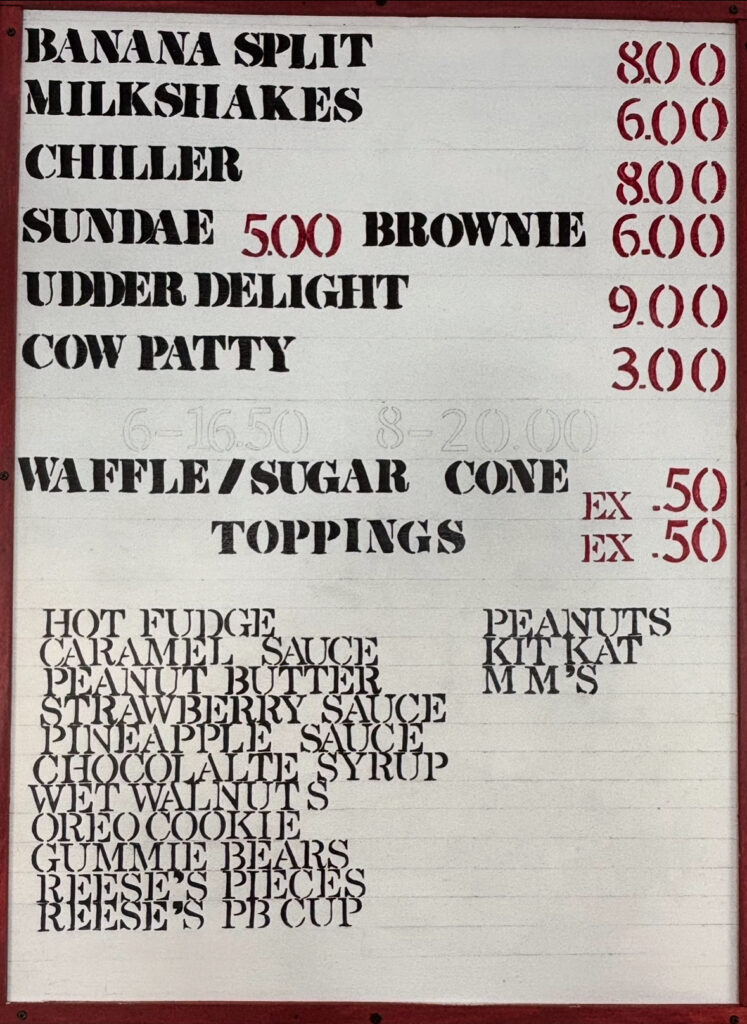 BANANA SPLIT 8.00
MILKSHAKES 6.00
CHILLER 8.00
SUNDAE 5.00 BROWNIE 6.00
UDDER DELIGHT 9.00
COW PATTY 3.00
6-16.50 8-20.00
WAFFLE/SUGAR CONE EX .50
TOPPINGS EX .50
HOT FUDGE
CARAMEL SAUCE
PEANUT BUTTER
STRAWBERRY SAUCE
PINEAPPLE SAUCE
CHOCOLALTE SYRUP
WET WALNUTS
OREO COOKIE
GUMMIE BEARS
REESE'S PIECES
REESE'S PB CUP
PEANUTS
KIT KAT
M M'S